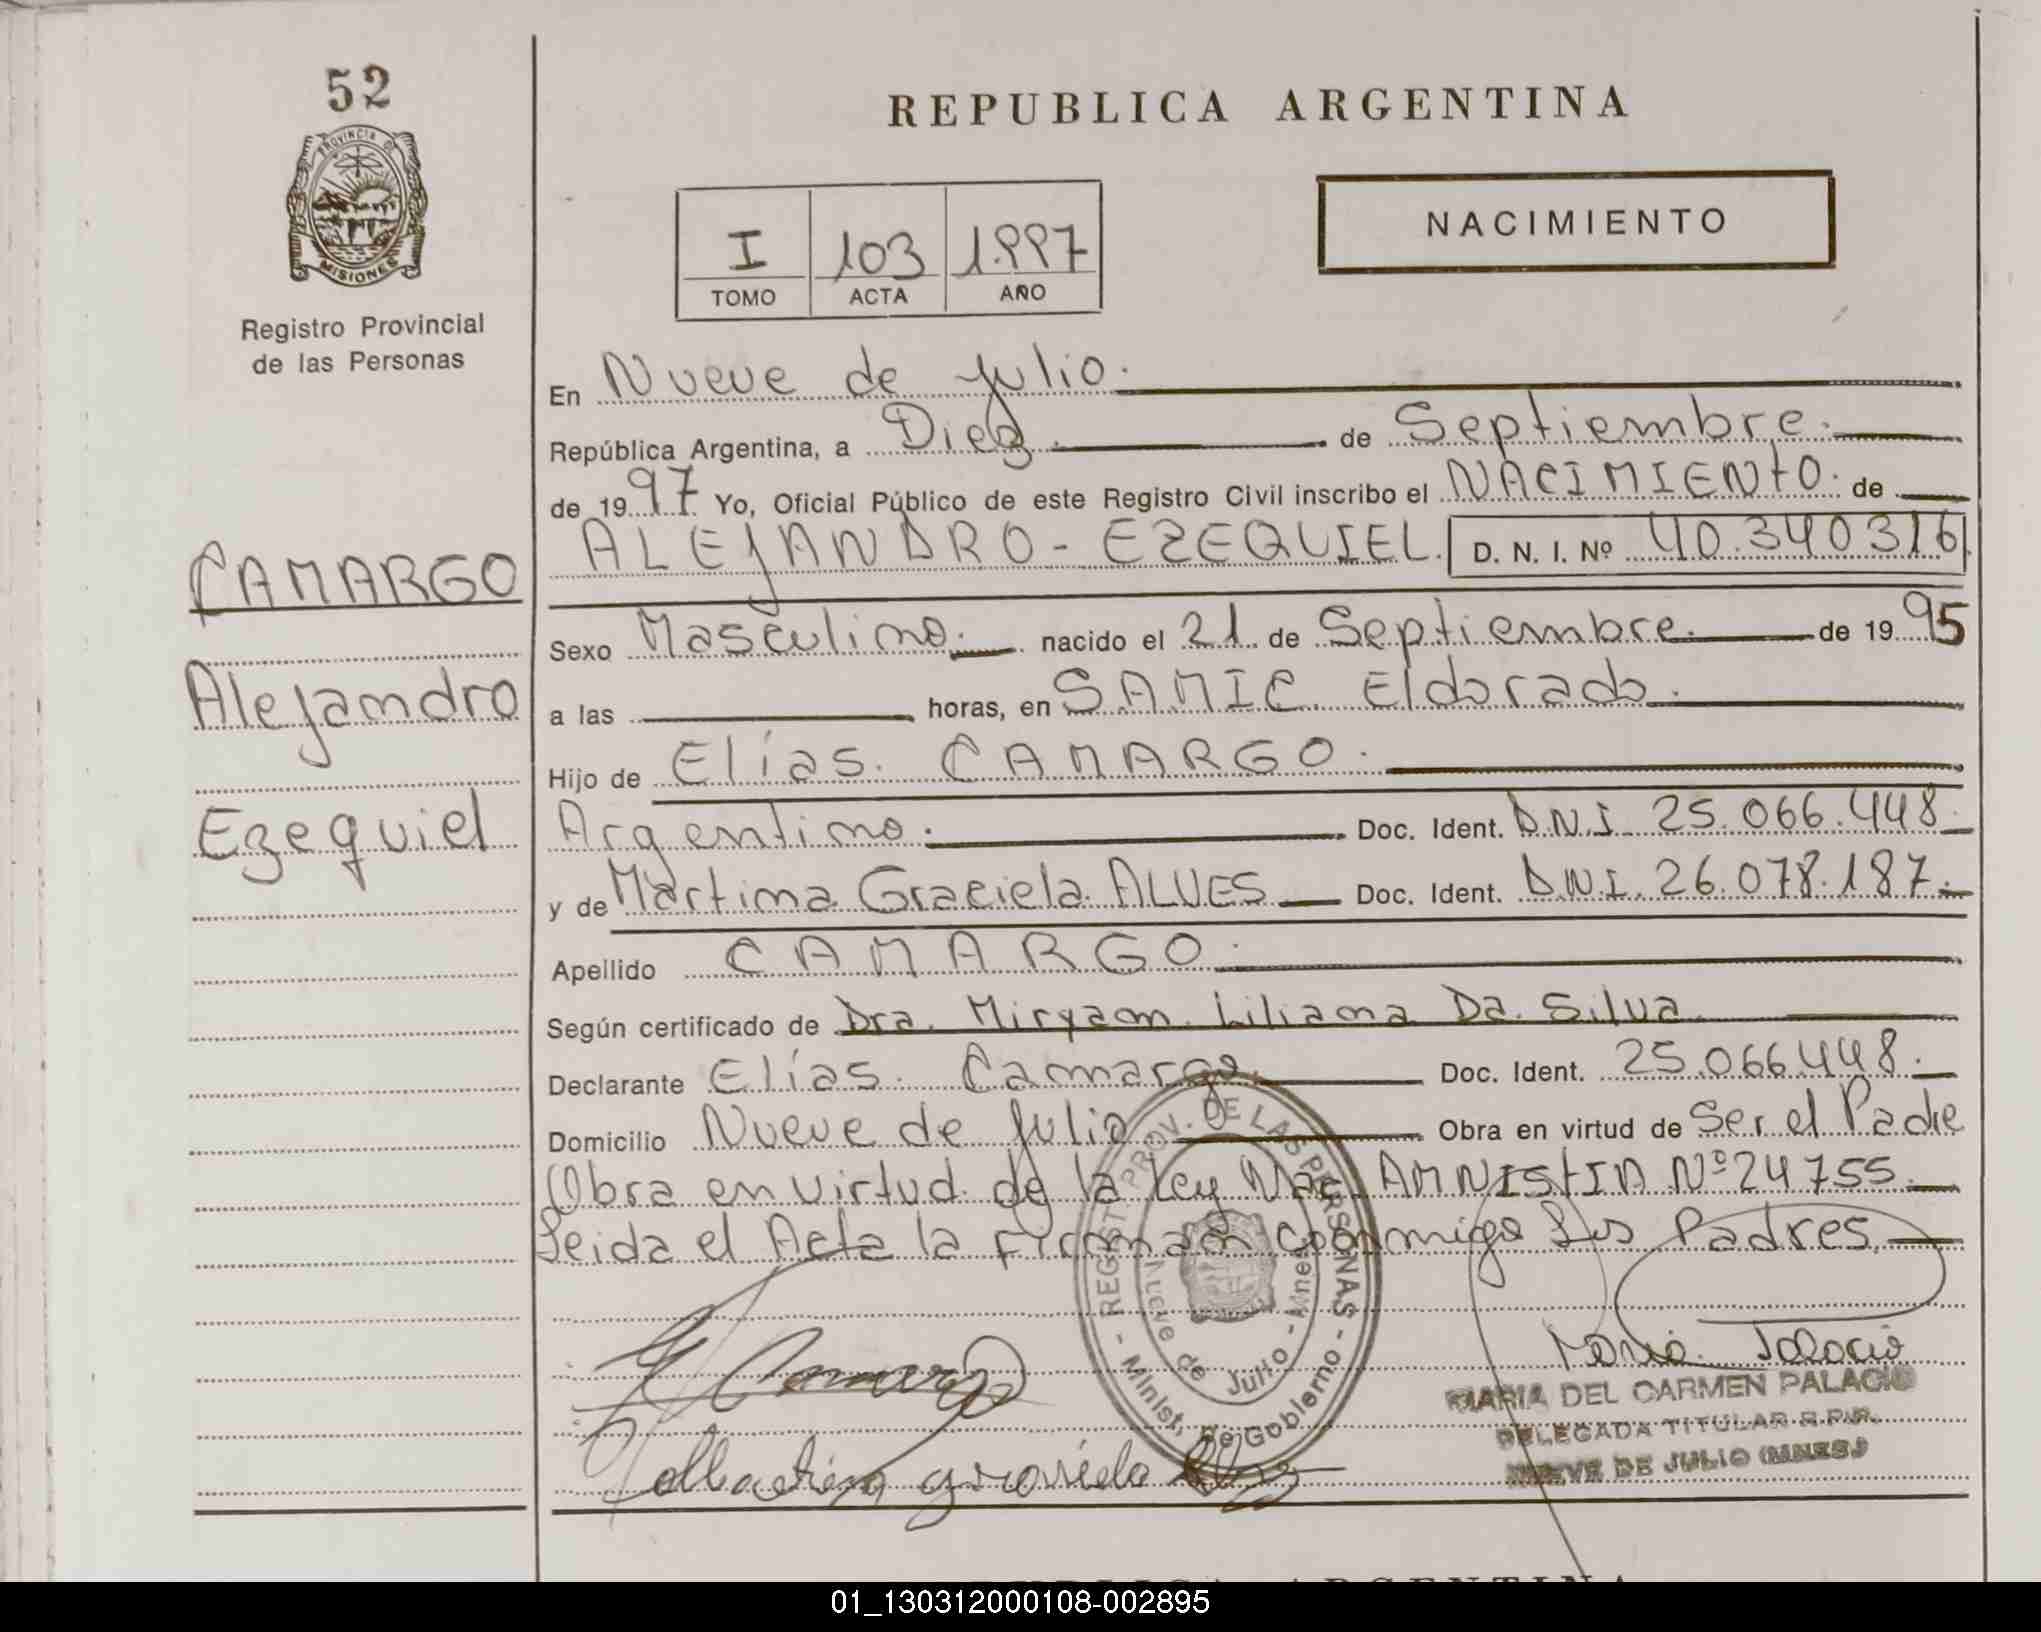 52
PROVINCIA DE
MISIONES
Registro Provincial
de las Personas
CAMARGO
Alejandro
Ezequiel
REPUBLICA ARGENTINA
I 103 1.997
TOMO ACTA AÑO
NACIMIENTO
En Nueve de Julio.
República Argentina, a Diez. de Septiembre.
de 1997 Yo, Oficial Público de este Registro Civil inscribo el NACIMIENTO. de
ALEJANDRO - EZEQUIEL. D. N. I. Nº 40.340316
Sexo Masculino. nacido el 21 de Septiembre. de 1995
a las horas, en SAMIC Eldorado.
Hijo de Elías. CAMARGO.
Argentino. Doc. Ident. D.N.I. 25.066.448.
y de Martina Graciela ALVES Doc. Ident. D.N.I. 26.078.187.
Apellido CAMARGO.
Según certificado de Dra. Miryam Liliana Da Silva
Declarante Elías. Camargo. Doc. Ident. 25.066.448.
Domicilio Nueve de Julio Obra en virtud de Ser el Padre
Obra en virtud de la Ley Nac. AMNISTIA Nº 24755.
Leida el Acta la firman conmigo Sus Padres.
REGIST. PROV. DE LAS PERSONAS
Nueve de Julio - Mnes
- Minist. De Gobierno -
Camargo
Maria Palacio
MARIA DEL CARMEN PALACIO
DELEGADA TITULAR R.P.P.
NUEVE DE JULIO (MNES.)
Martina graciela
REPUBLICA ARGENTINA
01_130312000108-002895